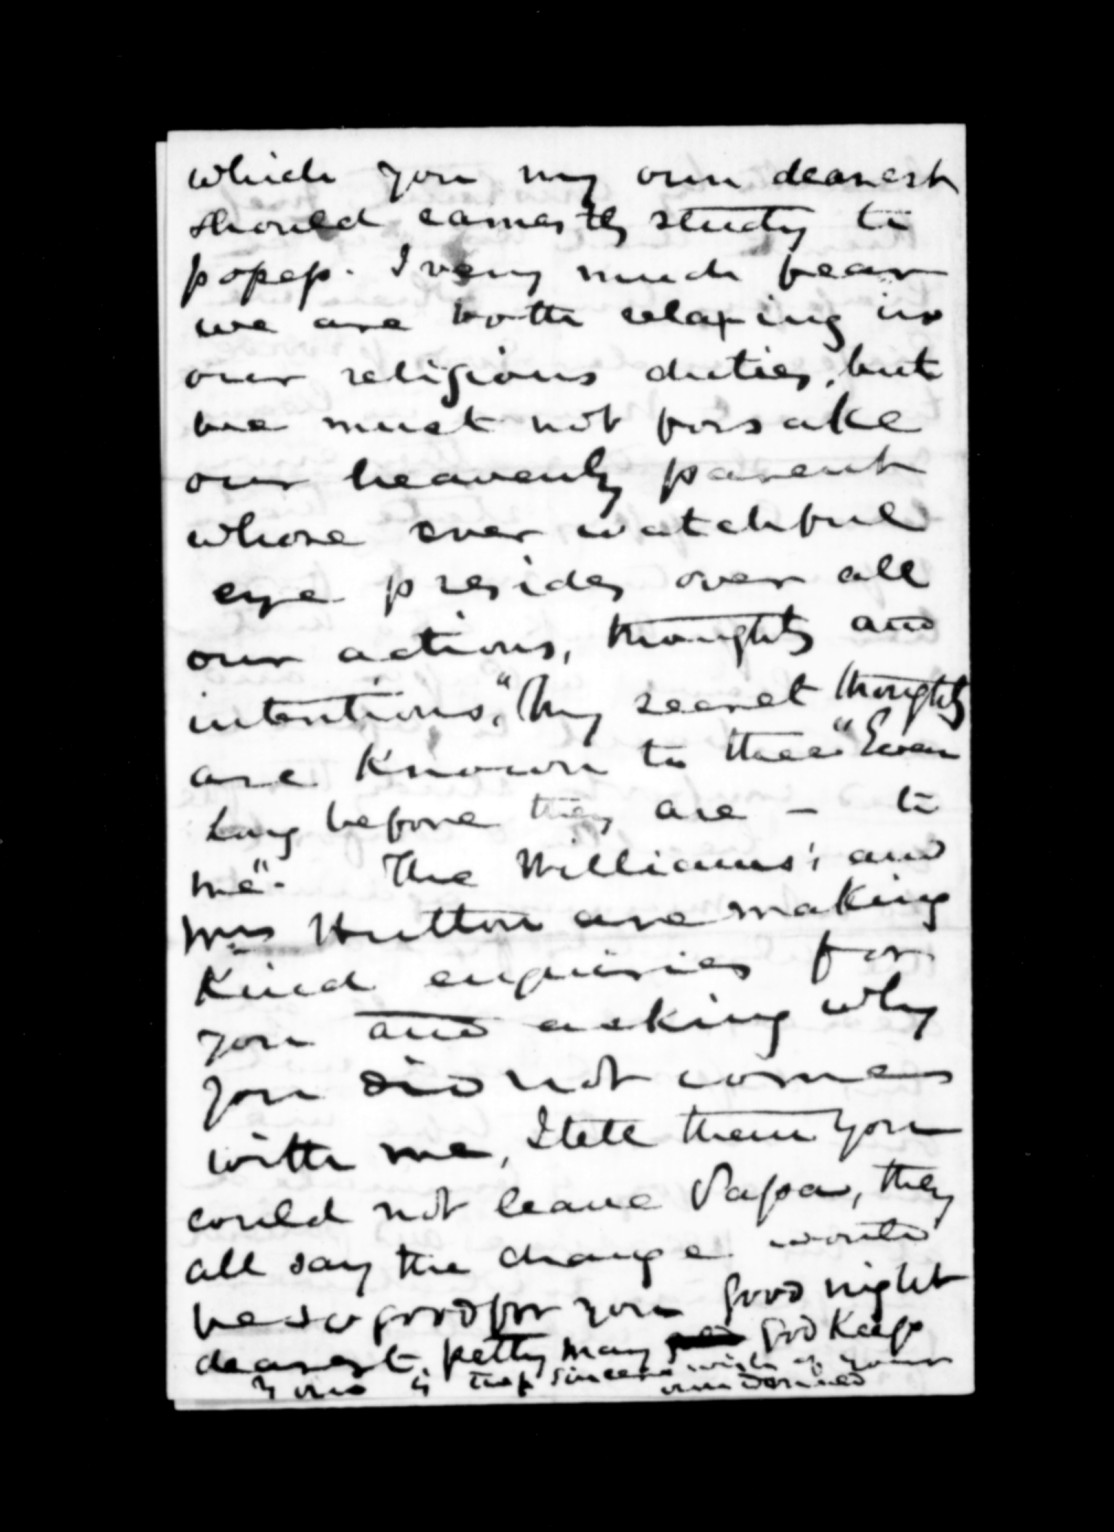 which you my own dearest
should earnestly study to
posess. I very much fear
we are both relaxing in
our religious duties, but
we must not forsake
our heavenly parent
whose ever watchful
eye presides over all
our actions, thoughts and
intentions, "My secret thoughts
are known to thee" "Even
long before they are — to
me". The Williams', and
Mrs Hutton are making
kind enquiries for
you and asking why
you did not come
with me, I tell them you
could not leave Papa, they
all say the change would
be so good for you good night
dearest, petty may God keep
you is the sincere wish of your
own